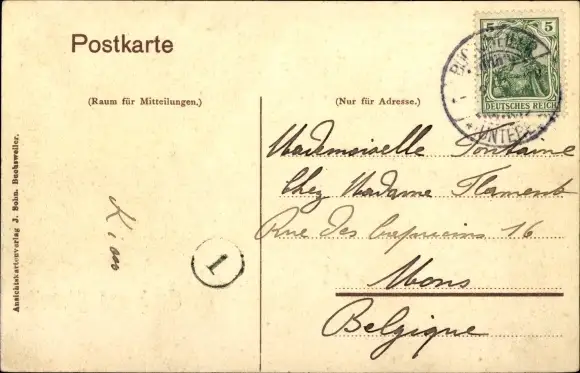 Postkarte
(Raum für Mitteilungen.)
(Nur für Adresse.)
5 5
DEUTSCHES REICH
UNTERE
Mademoiselle Fontaine
Chez Madame Flament
Rue des Capucins 16
Mons
Belgique
1
Ansichtskartenverlag J. Bohn. Buchsweiler.